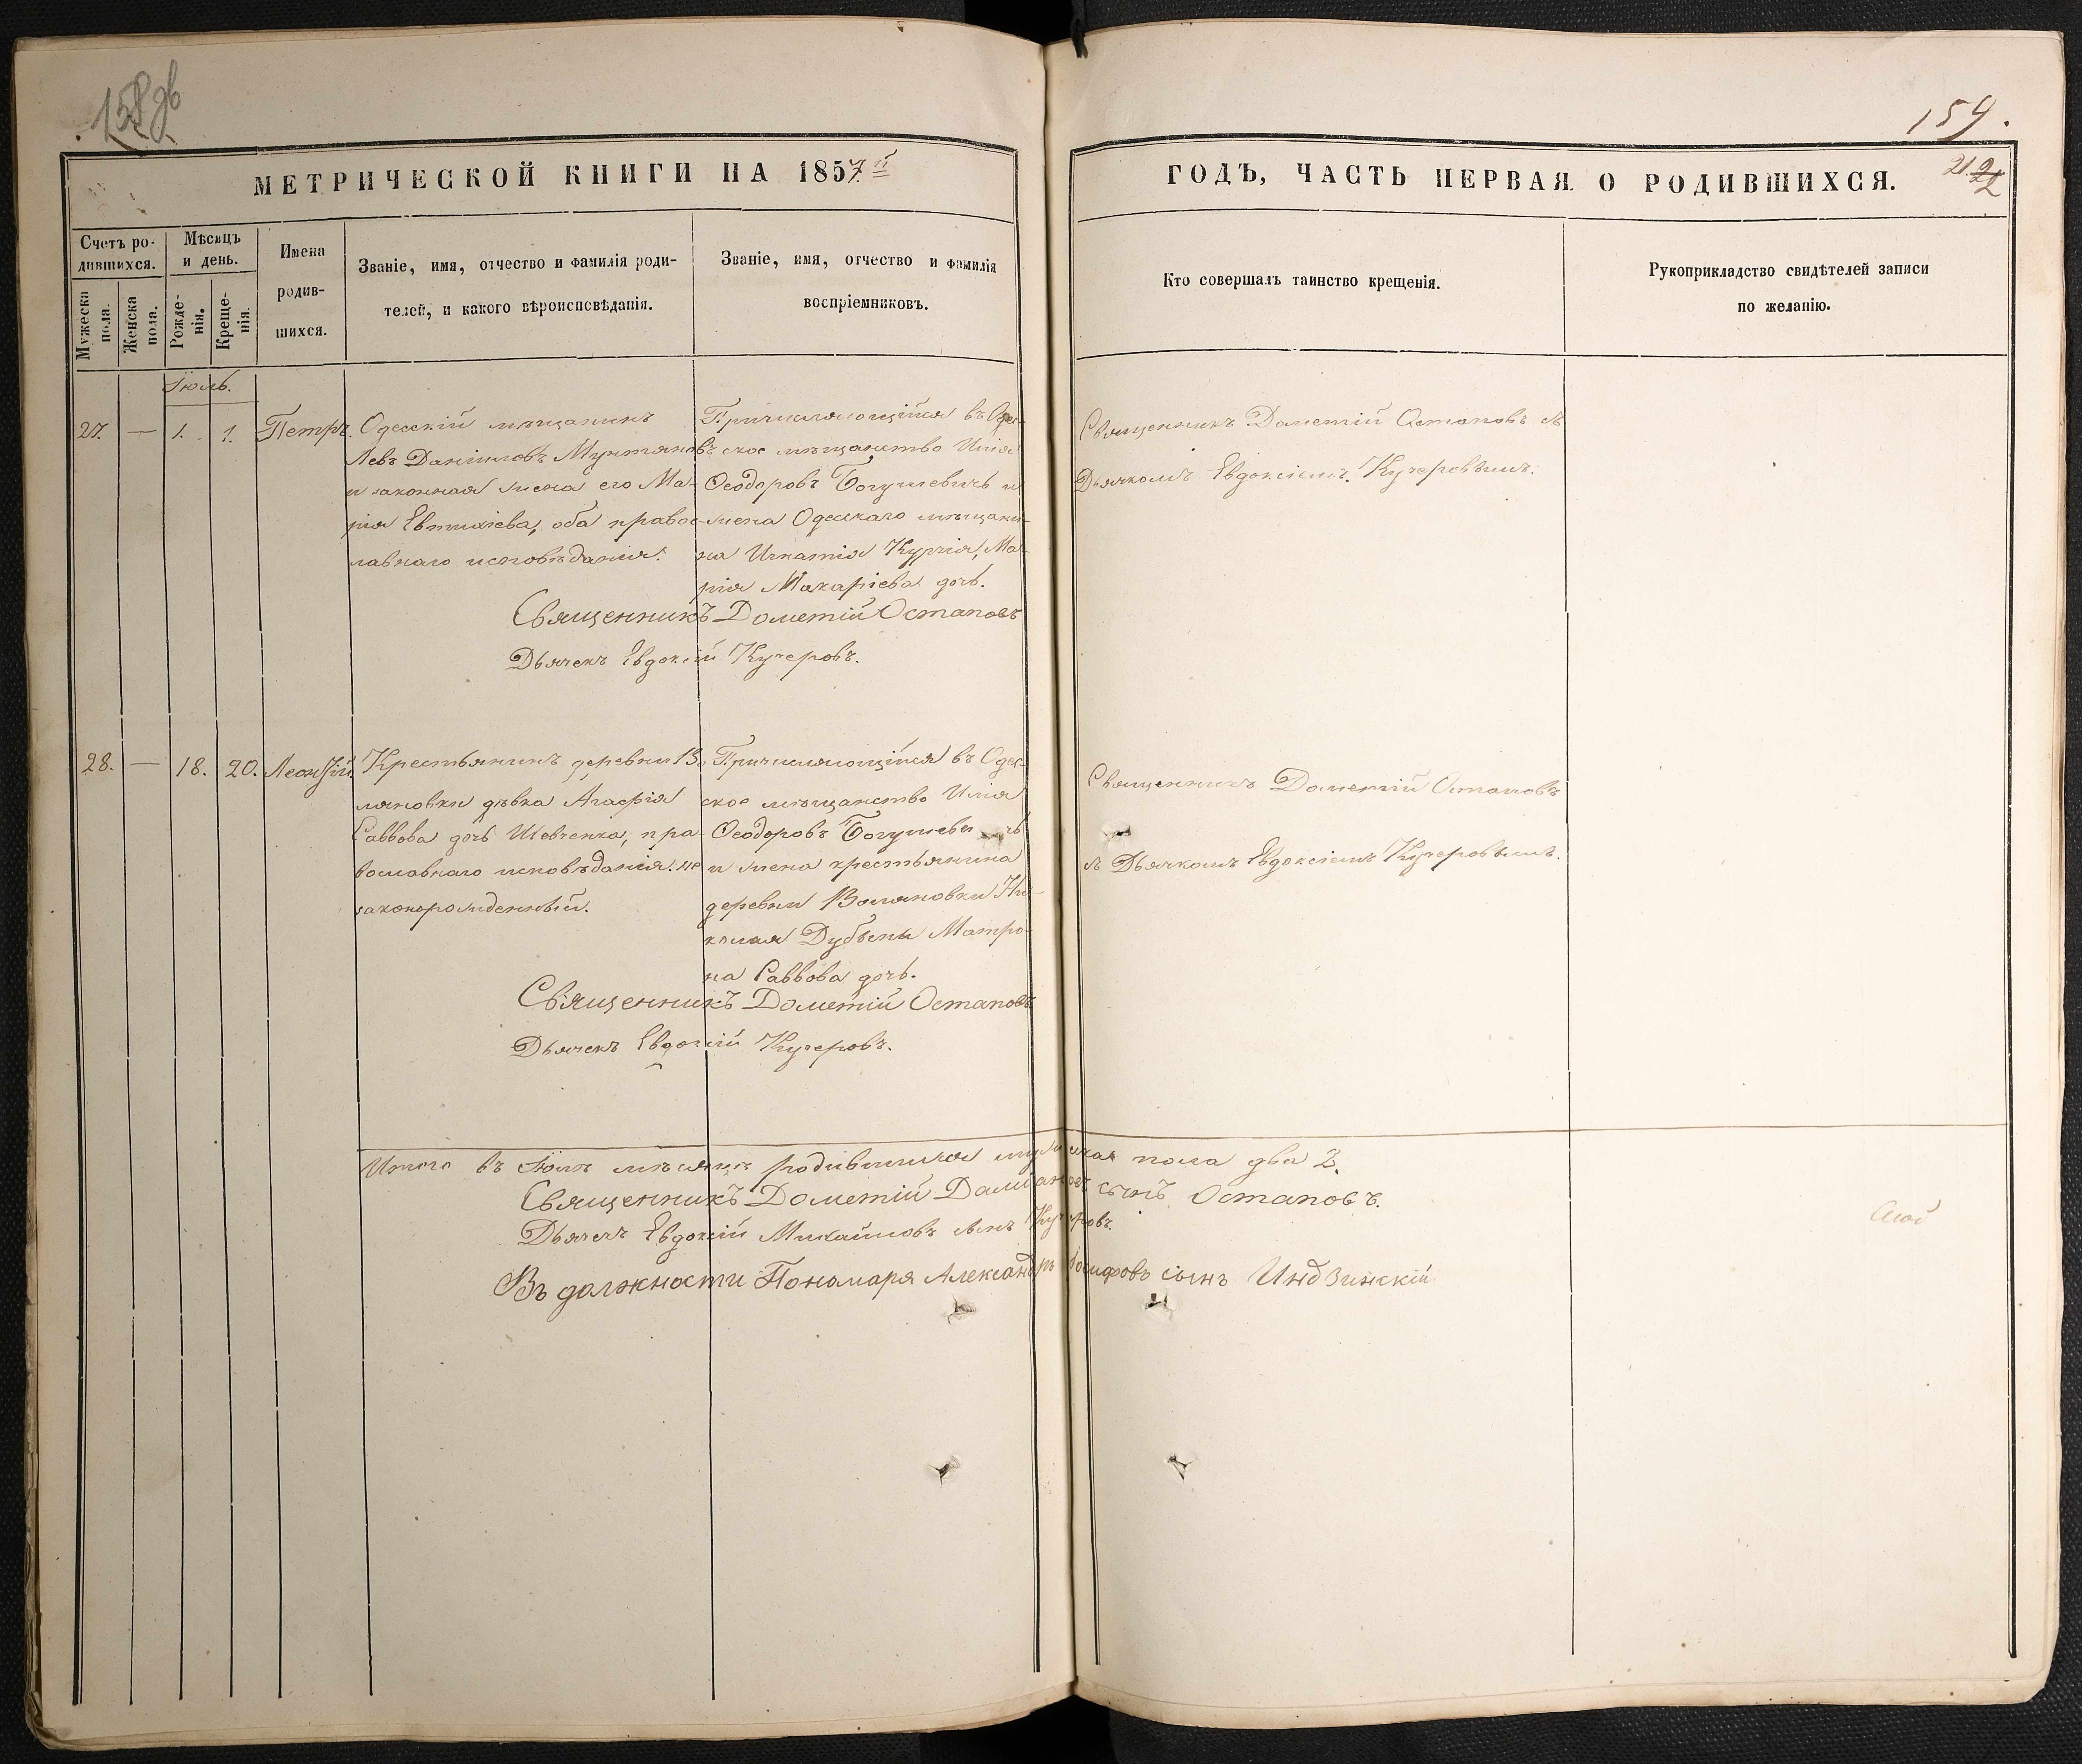 158 об
МЕТРИЧЕСКОЙ КНИГИ НА 1857й
Счетъ ро-
дившихся.
Мѣсяцъ
и день.
Имена
родив-
шихся.
Званіе, имя, отчество и фамилія роди-
телей, и какого вѣроисповѣданія.
Званіе, имя, отчество и фамилія
воспріемниковъ.
Мужеска
пола.
Женска
пола.
Рожде-
нія.
Креще-
нія.
Іюль.
27. — 1. 1. Петръ.
Одесскій мѣщанинъ
Левъ Даніиловъ Мунтяновъ
и законная жена его Ма-
рія Евтихіева, оба правос-
лавнаго исповѣданія.
Причисляющійся въ Одес-
ское мѣщанство Илія
Ѳеодоровъ Богушевичъ и
жена Одесскаго мѣщани-
на Игнатія Курчія, Ма-
рія Макаріева дочь.
Священникъ Дометій Остаповъ
Дьячекъ Евдоксій Кучеровъ.
28. — 18. 20. Леонтій
Крестьянинъ деревни Во
ляновки дѣвка Агафія
Саввова дочь Шевченка, пра-
вославнаго исповѣданія. не
законорожденный.
Причисляющійся въ Одес-
ское мѣщанство Илія
Ѳеодоровъ Богушевичъ
и жена крестьянина
деревни Воляновки Ни-
колая Дубены Матро-
на Саввова дочь.
Священникъ Дометій Остаповъ
Дьячекъ Евдоксій Кучеровъ.
Итого въ Іюлѣ мѣсяцѣ родившихся мужеска пола два 2.
Священникъ Дометій Даміановъ сынъ Остаповъ.
Дьячекъ Евдоксій Михайловъ сынъ Кучеровъ.
Въ должности Пономаря Александръ Іосифовъ сынъ Индзинскій
159.
ГОДЪ, ЧАСТЬ ПЕРВАЯ О РОДИВШИХСЯ.
21.
22
Кто совершалъ таинство крещенія.
Рукоприкладство свидѣтелей записи
по желанію.
Священникъ Дометій Остаповъ съ
Дьячкомъ Евдоксіемъ Кучеровымъ.
Священникъ Дометій Остаповъ
съ Дьячкомъ Евдоксіемъ Кучеровымъ.